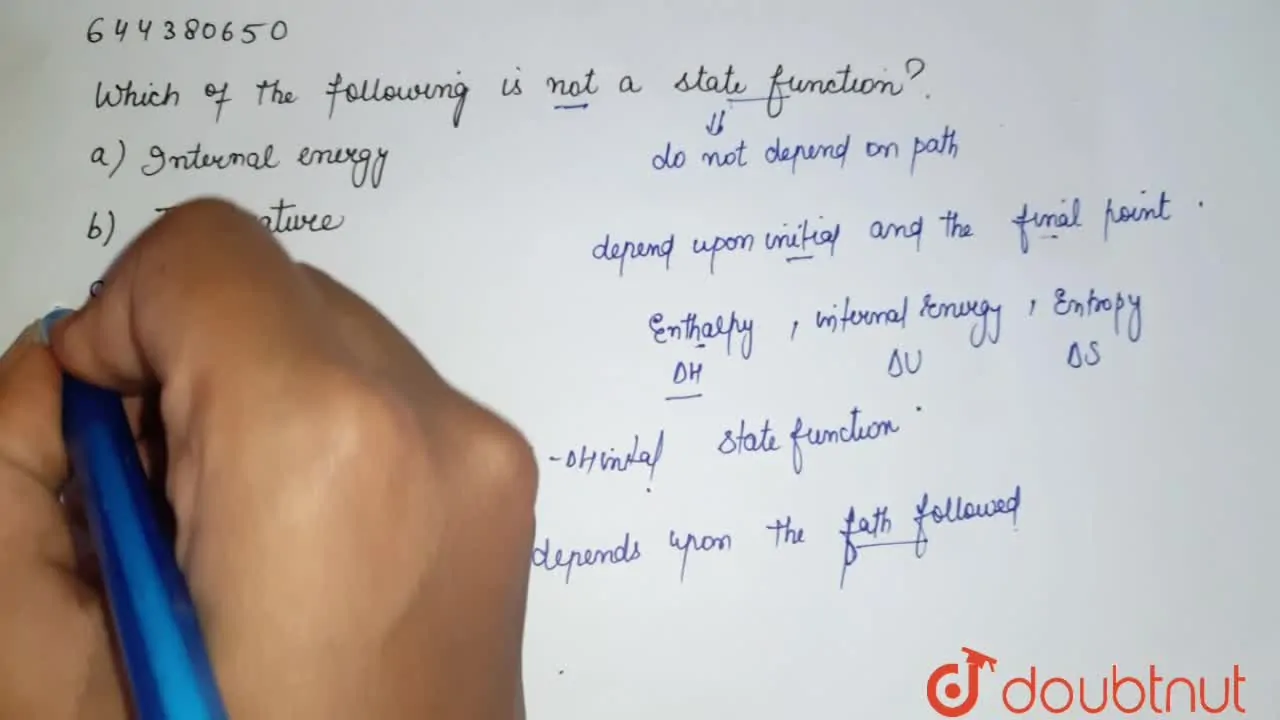 644380650
Which of the following is not a state function?
do not depend on path
a) Internal energy
b)
depend upon initial and the final point.
Enthalpy, internal Energy, Entropy
ΔH ΔU ΔS
State function
depends upon the path followed
doubtnut